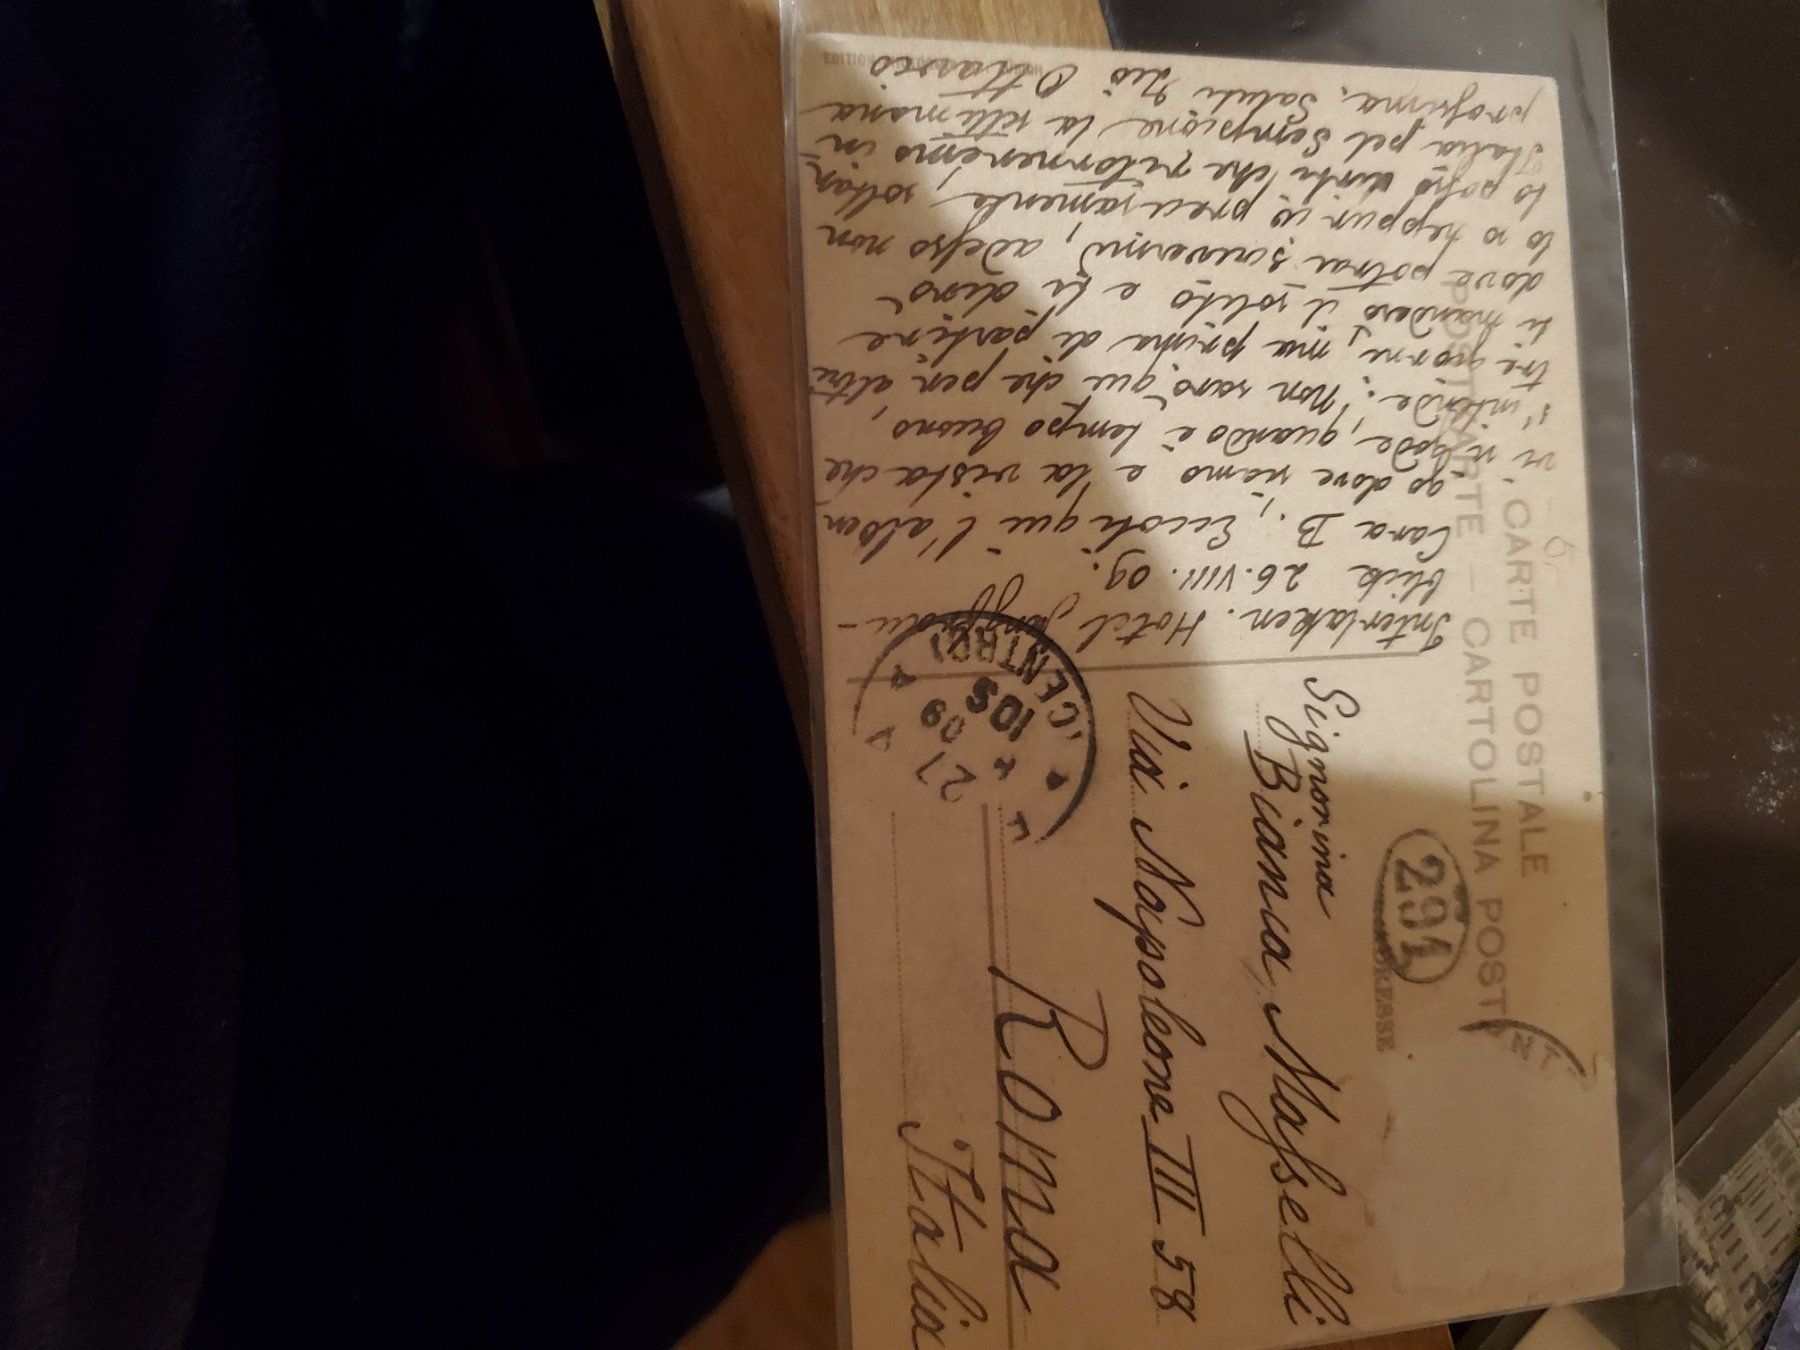 CARTE POSTALE
POSTKARTE — CARTOLINA POST
ADRESSE
291
Interlaken. Hotel Jungfrau-
blick 26.VIII.09.
Cara B., Eccoti qui l'alber
go dove siamo e la vista che
vi si gode, quando è tempo buono,
s'intende. Non sarò qui che per altri
tre giorni, ma prima di partire
ti manderò il solito e ti dirò
dove potrai scrivermi, adesso non
lo so neppur io precisamente, soltan
to posso dirti che ritorneremo in
Italia pel Sempione la settimana
prossima. Saluti Zio Ottavio
Signorina
Bianca Masselli
Via Napoleone III 58
Roma
Italia
27
09
10S
(CENTRO)